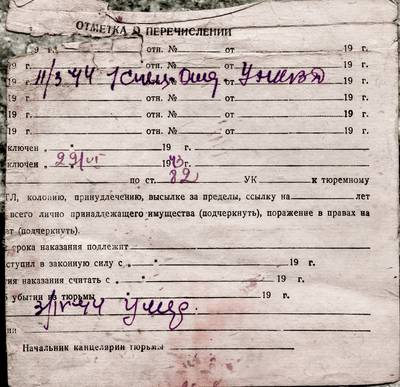 ОТМЕТКА О ПЕРЕЧИСЛЕНИИ
9 г. отн. № от 19 г.
19 г. отн. № от 19 г.
11/3-44
19 г. отн. № от 19 г.
19 г. отн. № от 19 г.
19 г. отн. № от 19 г.
ключен 19 г.
ключен 29/VI 1943 г.
по ст. 82 УК к тюремному
ТЛ, колонию, принудлечению, высылке за пределы, ссылку на лет
всего лично принадлежащего имущества (подчеркнуть), поражение в правах на
ет (подчеркнуть).
срока наказания подлежит
ступил в законную силу с 19 г.
ия наказания считать с 19 г.
убытии из тюрьмы 19 г.
Начальник канцелярии тюрьмы